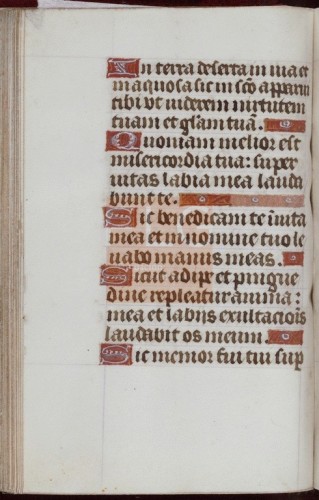 In terra deserta in uia et
in aquosa sic in scō apparui
tibi vt uiderem uirtutem
tuam et glām tuā.
Quoniam melior est
misericordia tua: super
uitas labia mea lauda
bunt te.
Sic benedicam te ī uita
mea et in nomine tuo le
uabo manus meas.
Sicut adipe et pingue
dine repleatur anima:
mea et labijs exultaciōis
laudabit os meum.
Sic memor fui tui sup